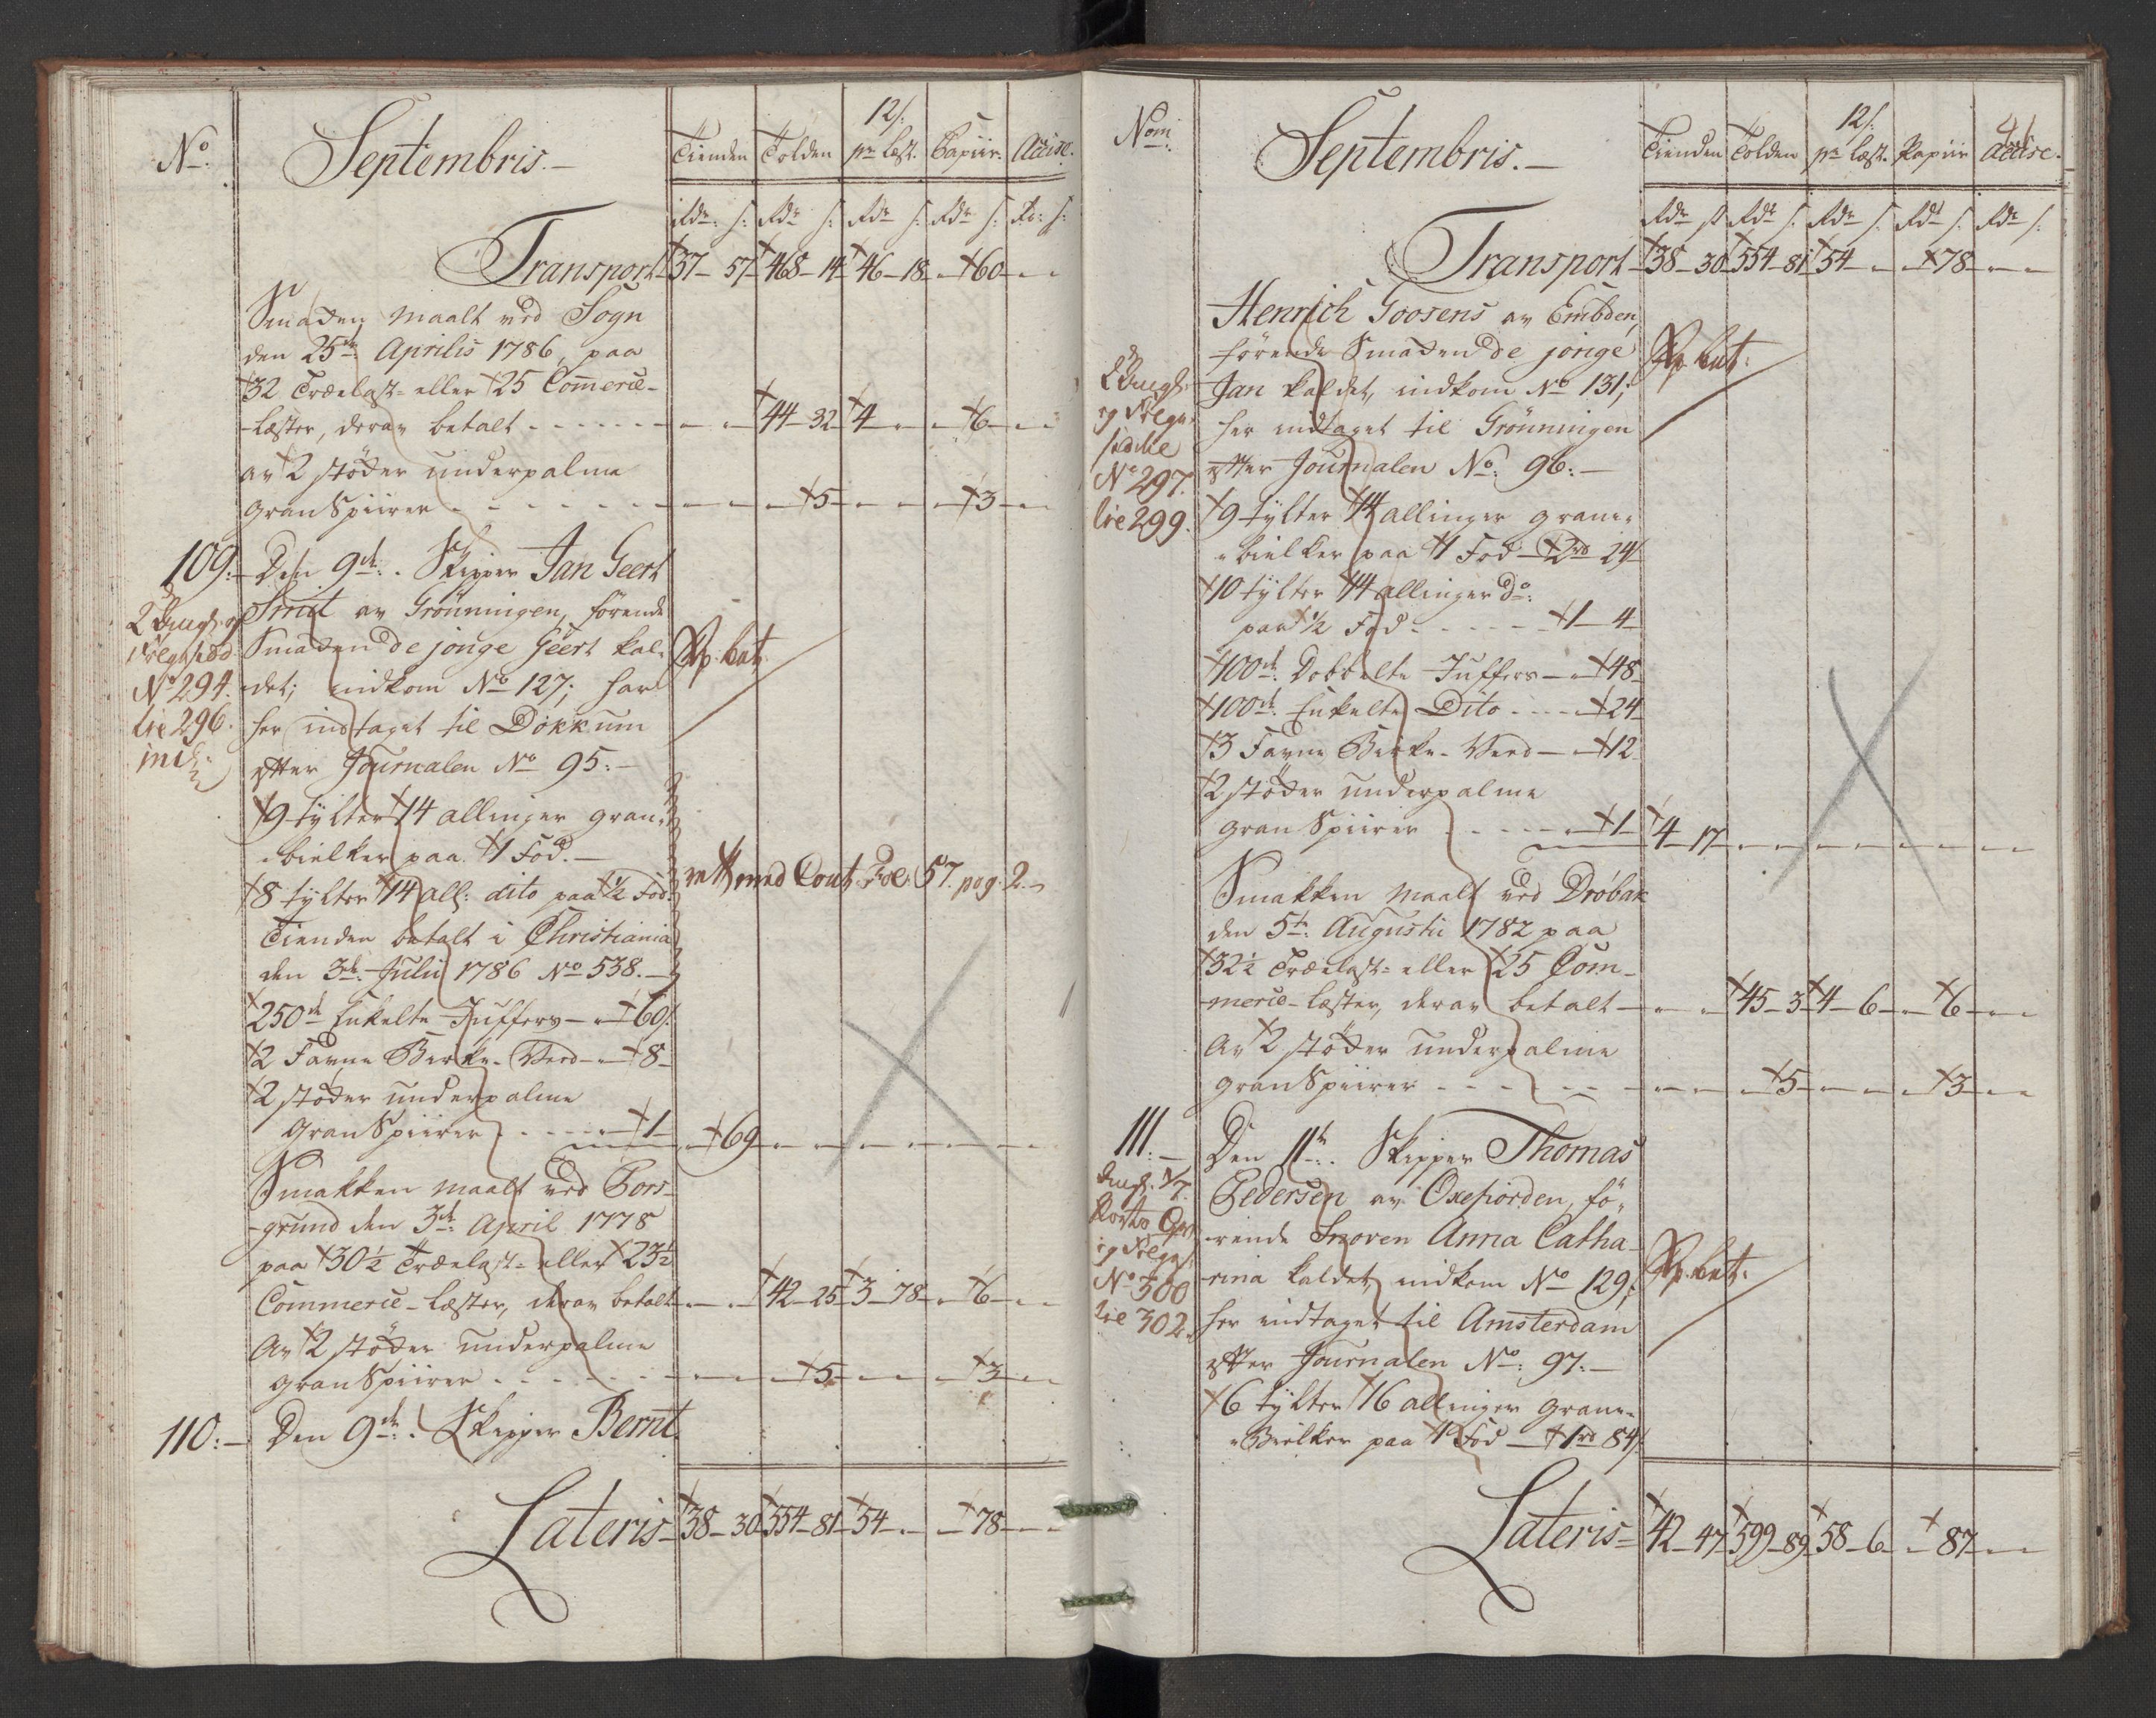 No
Septembris.
Tienden Tolden 12 s: pr Læst. Papiir. Accise.
Rdr. s: Rdr s: Rdr s: Rdr s: Rr: s:
Transport 37 - 57 468 - 14 46 - 18 - 60 - -
Smaden maalt ved Sogn
den 25de Aprilis 1786, paa
32 Trælast- eller 25 Comerce-
-læster, derav betalt - - 44 - 32 4 - - - 6 - -
av 2 støder underpalme
gran Spiirer - - - 5 - - - - 3 - -
109. Den 9de. Skipper Jan Geert
Smit av Grønningen, førende
Smaden de jonge Geert kal-
det; indkom No 127; har
her indtaget til Dokkum
efter Journalen No 95.
No 294.
tie 296.
incl.
9 tylter 14 allinger gran-
bielker paa 1 Fod.
8 tylter 14 all: dito paa 1/2 Fod.
Tienden betalt i Christiania
den 3de Julii 1786 No 538.
rett med Cont. Fol. 57. pag. 2.
250de Enkelte Juffers - 60 s.
2 Favne Birke-Veed - 8
2 støder underpalme
gran Spiirer - 1 - 69 - - - - - - - -
Smakken maalt ved Pors-
-grund den 3de April 1778
paa 30 1/2 Trælast- eller 23 1/2
Commerce-læster, derav betalt - - 42 - 25 3 - 78 - 6 - -
Av 2 støder underpalme
gran Spiirer - - - 5 - - - 3 - -
110. Den 9de. Skipper Bernt
Lateris 38 - 30 554 - 81 54 - - - 78 - -
Nom.
Septembris.
Tienden Tolden 12 s: pr Læst. Papiir Accise.
41
Rdr s Rdr s: Rdr s: Rdr s: Rdr s:
Transport 38 - 30 554 - 81 54 - - - 78 - -
Henrich Goosens av Embden,
førende Smaden de jonge
Jan kaldet, indkom No 131;
her indtaget til Grønningen
efter Journalen No: 96.
No 297.
tie 299.
9 tylter 14 allinger grane-
bielker paa 1 Fod - 2 rd 24
10 tylter 14 allinger do:
paa 1/2 Fod - 1 - 4
100de Dobbelte Juffers - 48
100de Enkelte Dito - 24
3 Favne Birke-Veed - 12
2 støder underpalme
gran Spiirer - 1 4 - 17 - - - - - - - -
Smakken maalt ved Drøbak
den 5te Augustii 1782 paa
32 1/2 Trælast- eller 25 Com-
-merce-læster, derav betalt - - 45 - 3 4 - 6 - 6 - -
Av 2 støder underpalme
gran Spiirer - - - 5 - - - 3 - -
111. Den 11te. Skipper Thomas
Pedersen av Oxefiorden, fø-
-rende Snoven Anna Catha-
-rina kaldet, indkom No 129;
her indtaget til Amsterdam
efter Journalen No: 97.
No 300
tie 302.
6 tylter 16 allinger grane-
Bielker paa 1 Fod - 1 rd 84 s.
Lateris 42 - 47 599 - 89 58 - 6 - 87 - -